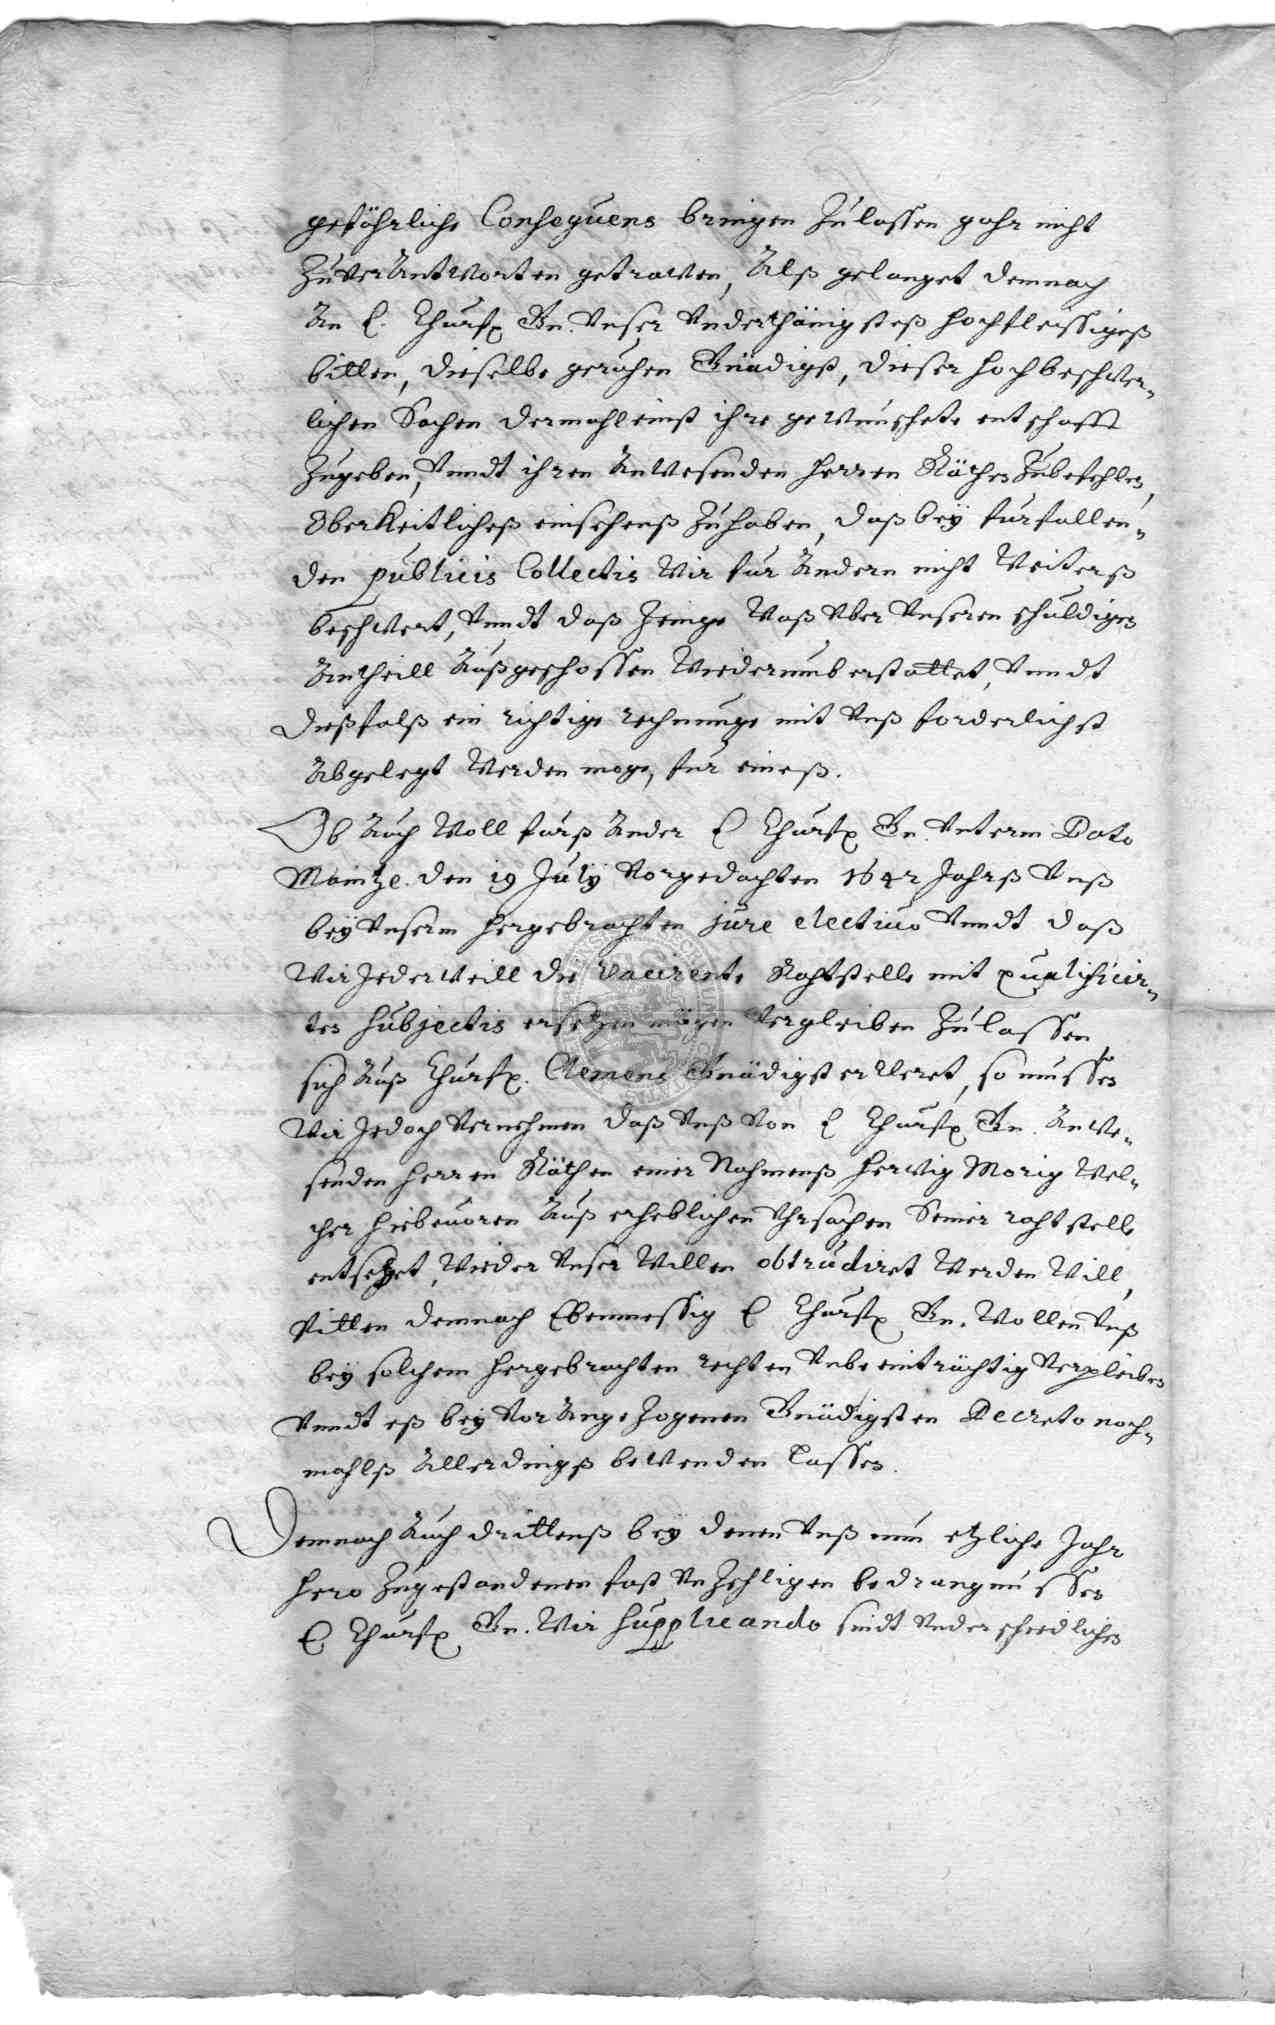 gefährliche Consequens bringen Zulassen gahr nicht
ZuverAntworten getrawen, Alß gelanget demnach
An E. Churfl. Gn. Vnser Vnderthänigsteß hochfleissigeß
bitten, dieselbe geruhen Gnädigst, dieser hochbeschwer-
lichen Sachen dermahleinst ihre gewünschete entschafft
Zugeben, Vnndt ihren Anwesenden herren Räthen Zubefehlen,
OberKeitlicheß einsehenß Zuhaben, daß beÿ fürfallen-
den publicis Collectis Wir für Andern nicht Weiterß
beschwert, Vnndt daß Jenige Waß Vber Vnseren schuldigen
Antheill Außgeschossen Wiederumb erstattet, Vnndt
dießfalß ein richtige rechnunge mit Vnß forderlichst
Abgelegt Werden moge, für eineß.
Ob Auch Woll fürß Ander E Churfl. Gn. Vnterm Dato
Maintze. den 19 Julÿ Vorgedachten 1642 Jahrß Vnß
beÿ Vnserm hergebrachten jure electiuo Vnndt daß
Wir Jederweill die Vacirente Rahtstelle mit qualificir-
ten subjectis ersetzen mögen Vergleiben Zulassen
sich Auß Churfl. Clemens Gnädigst erkleret, so mussen
Wir Jedoch Vernehmen daß Vnß Von E Churfl. Gn. Anwe-
senden herren Räthen einer Nahmenß herwig Morig Wel-
cher hiebeuoren Auß erheblichen Vhrsachen Seiner rahtstelle
entsetzet, Wieder Vnser Willen obtrudiret Werden Will,
Bitten demnach Ebenmessig E Churfl. Gn. Wollen Vnß
beÿ solchem hergebrachten rechten Vnbeeinträchtig Vergleiben
Vnndt eß beÿ VorAngezogenen Gnädigsten Decreto noch-
mahlß Allerdingß bewenden lassen.
Demnach Auch drittenß beÿ denen Vnß nun etzliche Jahr
hero Zugestandenen fast Vnzehligen bedrangnussen
E Churfl. Gn. Wir supplicando sindt Vnderschiedlichen